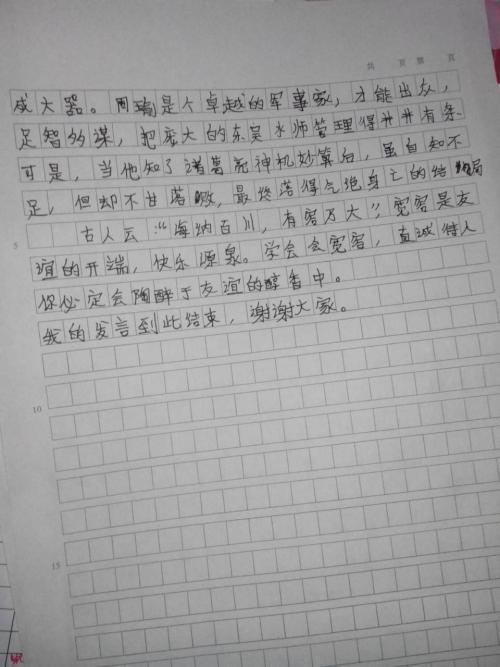 共 页 第 页
成大器。周瑜是个卓越的军事家，才能出众，
足智多谋，把庞大的东吴水师管理得井井有条
可是，当他知了诸葛亮神机妙算后，虽自知不
足，但却不甘落败，最终落得气绝身亡的结局
古人云：“海纳百川，有容乃大”，宽容是友
5
谊的开端，快乐源泉。学会会宽容，真诚待人
你必定会陶醉于友谊的醇香中。
我的发言到此结束，谢谢大家。
10
15